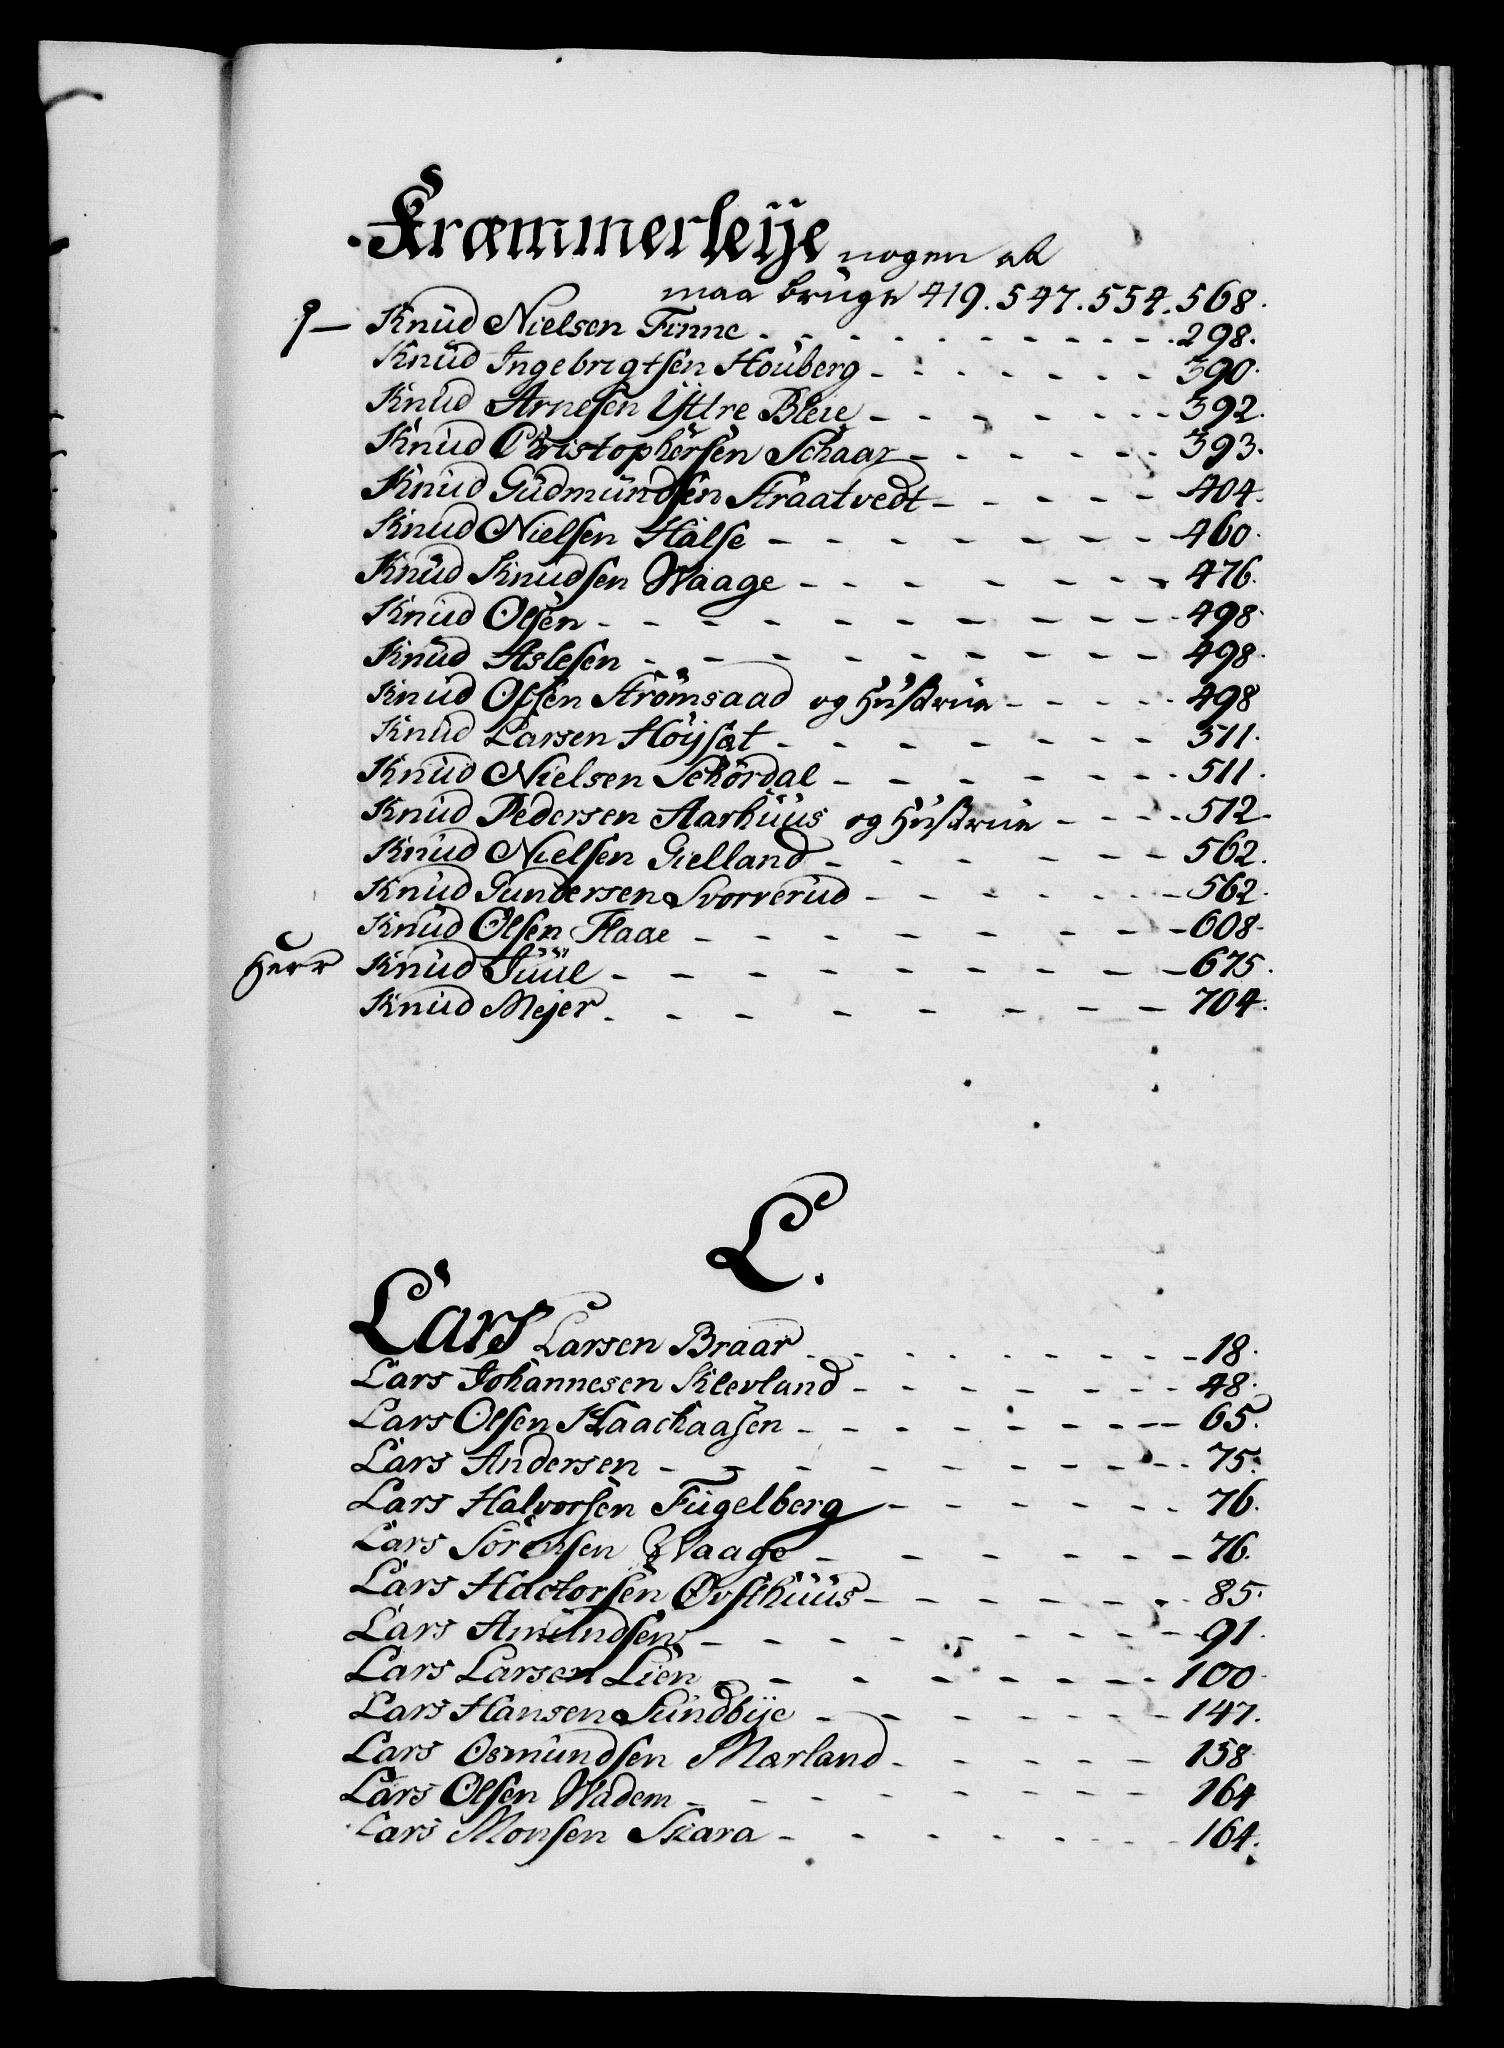 Kræmmerleÿe nogen at
maa bruge 419. 547. 554. 568.
Knud Nielsen Finne - - - 298.
Knud Ingebrigtsen Houberg - - - 390.
Knud Arnesen Ÿttre Bleie - - - 392.
Knud Christophersen Schaar - - - 393.
Knud Gudmundsen Straatvedt - - - 404.
Knud Nielsen Halse - - - 460.
Knud Knudsen Waage - - - 476.
Knud Olsen - - - 498.
Knud Aslesen - - - 498.
Knud Olsen Strömsaad og Hustrue - - - 498
Knud Larsen Höÿsæt - - - 511.
Knud Nielsen Schördal - - - 511.
Knud Pedersen Aarhuus og Hustrue - - - 512.
Knud Nielsen Gielland - - - 562.
Knud Gundersen Svorverud - - - 562.
Knud Olsen Flaae - - - 608.
Herr Knud Juul - - - 675.
Knud Mejer - - - 704.
L.
Lars Larsen Braar - - - 18.
Lars Johannesen Klevland - - - 48.
Lars Olsen Klaachaasen - - - 65.
Lars Andersen - - - 75.
Lars Halvorsen Fugelberg - - - 76.
Lars Sörensen Waage - - - 76.
Lars Hactorsen Øvsthuus - - - 85.
Lars Amundsen - - - 91.
Lars Larsen Lien - - - 100.
Lars Hansen Sundbÿe - - - 147.
Lars Osmundsen Mærland - - - 158
Lars Olsen Wadem - - - 164
Lars Monsen Skara - - - 164.